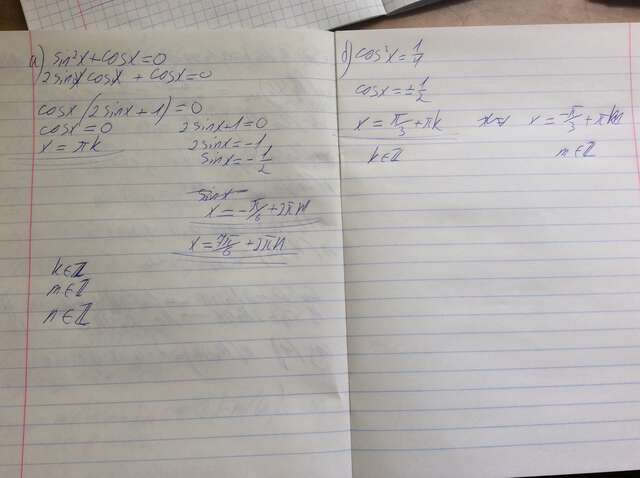 а) sin²x+cosx=0
2sinx cosx + cosx=0
cosx(2sinx+1)=0
cosx=0
x=πk
2sinx+1=0
2sinx=-1
sinx=-1/2
sinx
x=-π/6+2πm
x=7π/6+2πn
k∈ℤ
m∈ℤ
n∈ℤ
б) cos²x=1/4
cosx=±1/2
x=π/3+πk
k∈ℤ
x=-π/3+πm
m∈ℤ